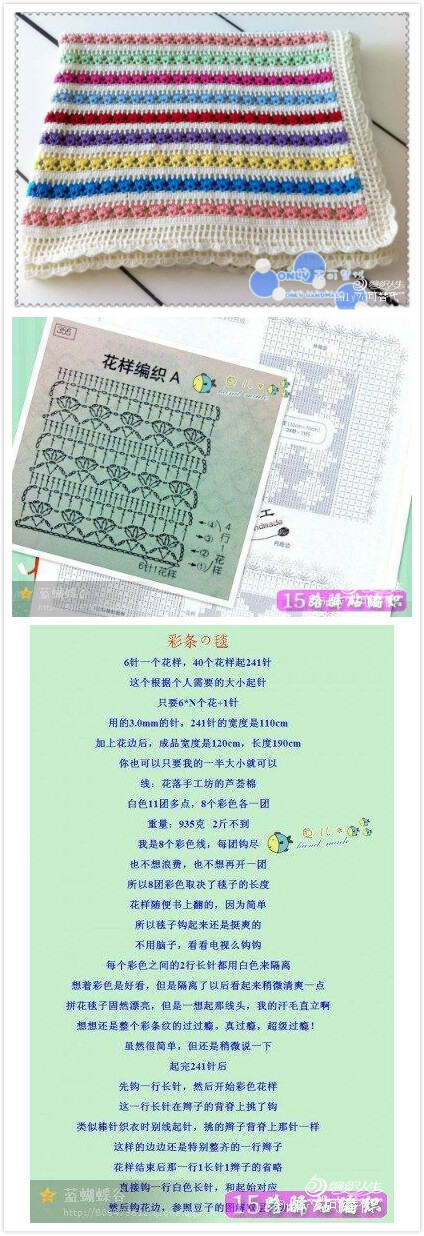 ONLY
编织人生
356
花样编织 A
④ 4
③ 行
② 1
① 花样
6针1花样
蓝蝴蝶谷
15路驿站编织
彩条の毯
6针一个花样，40个花样起241针
这个根据个人需要的大小起针
只要6*N个花+1针
用的3.0mm的针，241针的宽度是110cm
加上花边后，成品宽度是120cm，长度190cm
你也可以只要我的一半大小就可以
线：花落手工坊的芦荟棉
白色11团多点，8个彩色各一团
重量：935克 2斤不到
我是8个彩色线，每团钩尽
hand made
也不想浪费，也不想再开一团
所以8团彩色取决了毯子的长度
花样随便书上翻的，因为简单
所以毯子钩起来还是挺爽的
不用脑子，看看电视么钩钩
每个彩色之间的2行长针都用白色来隔离
想着彩色是好看，但是隔离了以后看起来稍微清爽一点
拼花毯子固然漂亮，但是一想起那线头，我的汗毛直立啊
想想还是整个彩条纹的过过瘾，真过瘾，超级过瘾！
虽然很简单，但还是稍微说一下
起完241针后
先钩一行长针，然后开始彩色花样
这一行长针在辫子的背脊上挑了钩
类似棒针织衣时别线起针，挑的辫子背脊上那针一样
这样的边边还是特别整齐的一行辫子
花样结束后那一行1长针1辫子的省略
直接钩一行白色长针，和起始对应
然后钩花边，参照豆子的图
编织人生
蓝蝴蝶谷
15路驿站编织